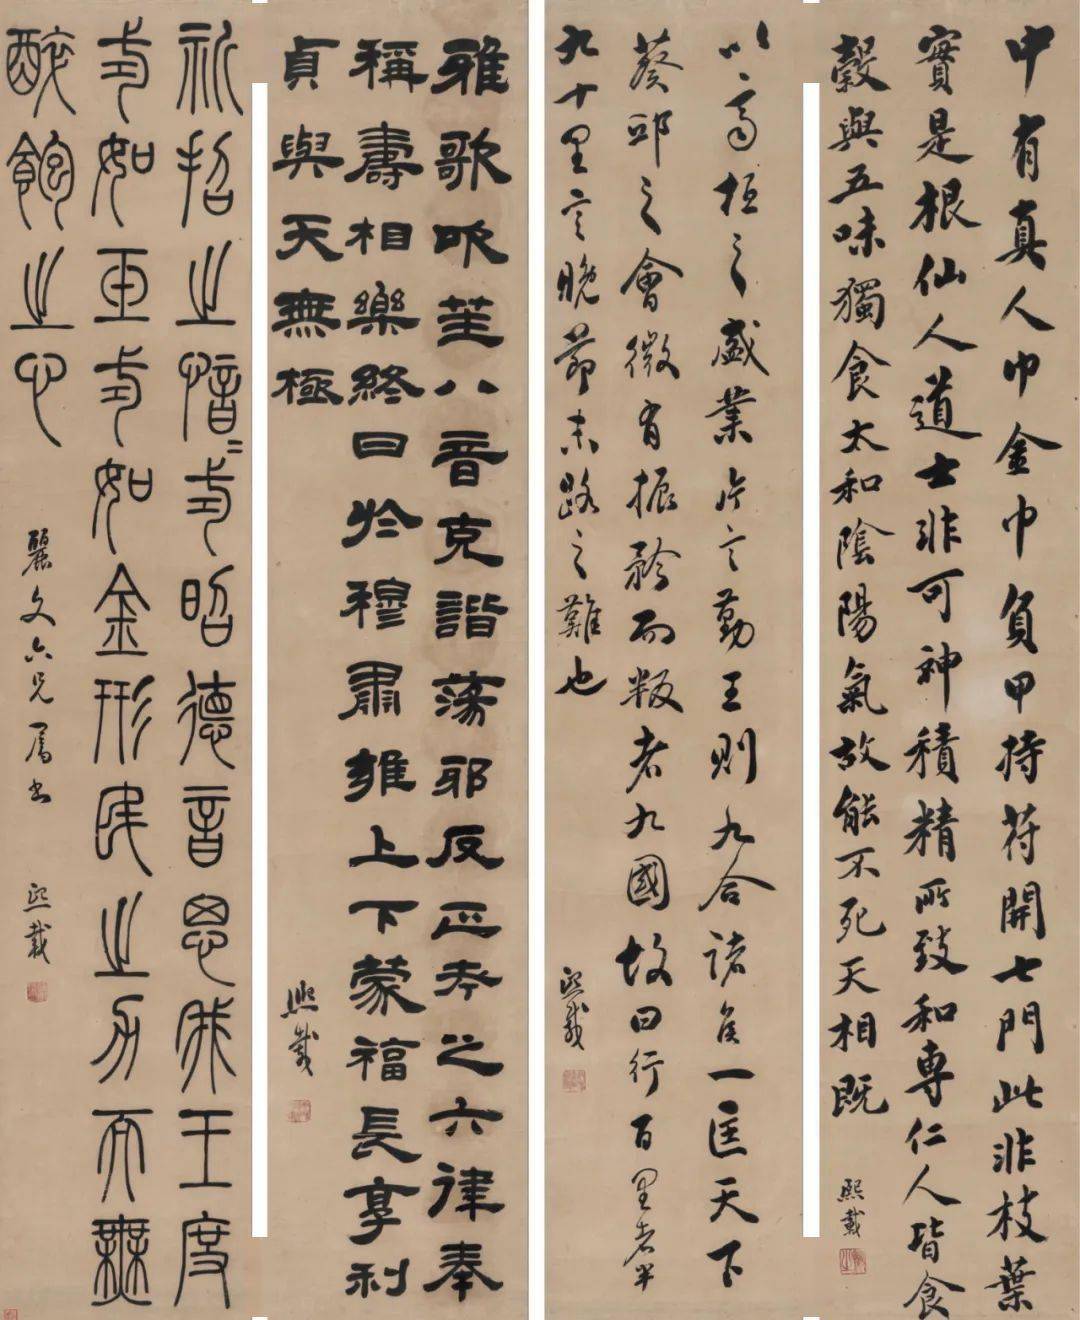 中有真人巾金巾負甲持符開七門此非枝葉
實是根仙人道士非可神積精所致和専仁人皆食
穀與五味獨食太和陰陽氣故能不死天相既
熙載
以齊桓之盛業片言勤王則九合諸侯一匡天下
葵邱之會微有振矜而叛者九國故曰行百里者半
九十里言晚節末路之難也
熙載
雅歌吹笙八音克諧蕩邪反正考之六律奉
稱壽相樂終日於穆肅雍上下蒙福長享利
貞與天無極
熙載
祈招之愔〻式昭德音思我王度
式如玉式如金形民之力而無
醉飽之心
麗文六兄屬書
熙載